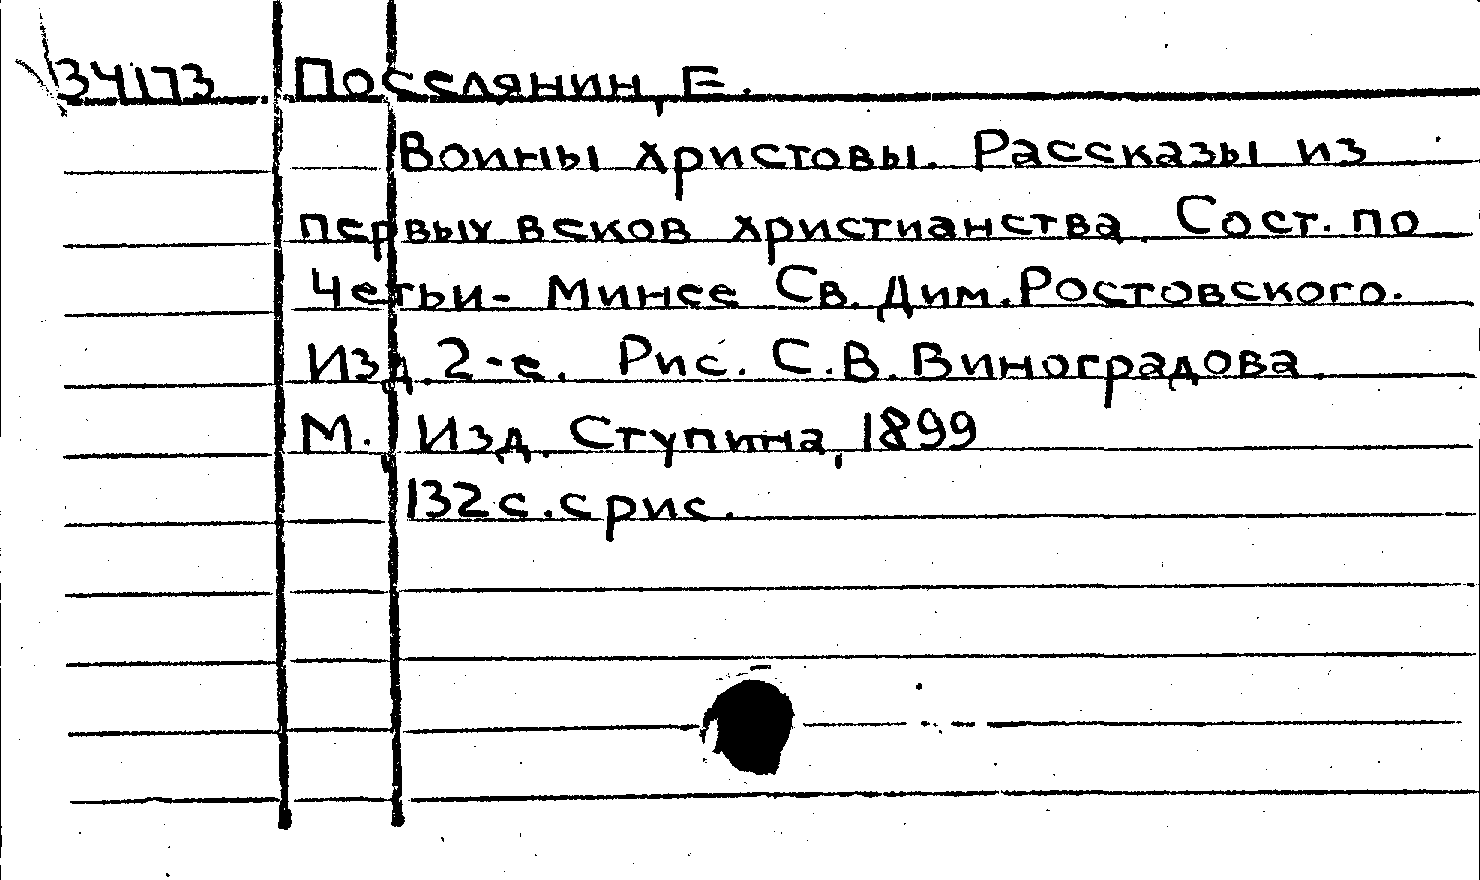 34173 Поселянин, Е.
Воины христовы. Рассказы из
первых веков христианства Сост. по
Четьи- Минее Св. Дим. Ростовского.
Изд. 2-е. Рис. С.В. Виноградова.
М., Изд. Ступина, 1899
132 с. с рис.